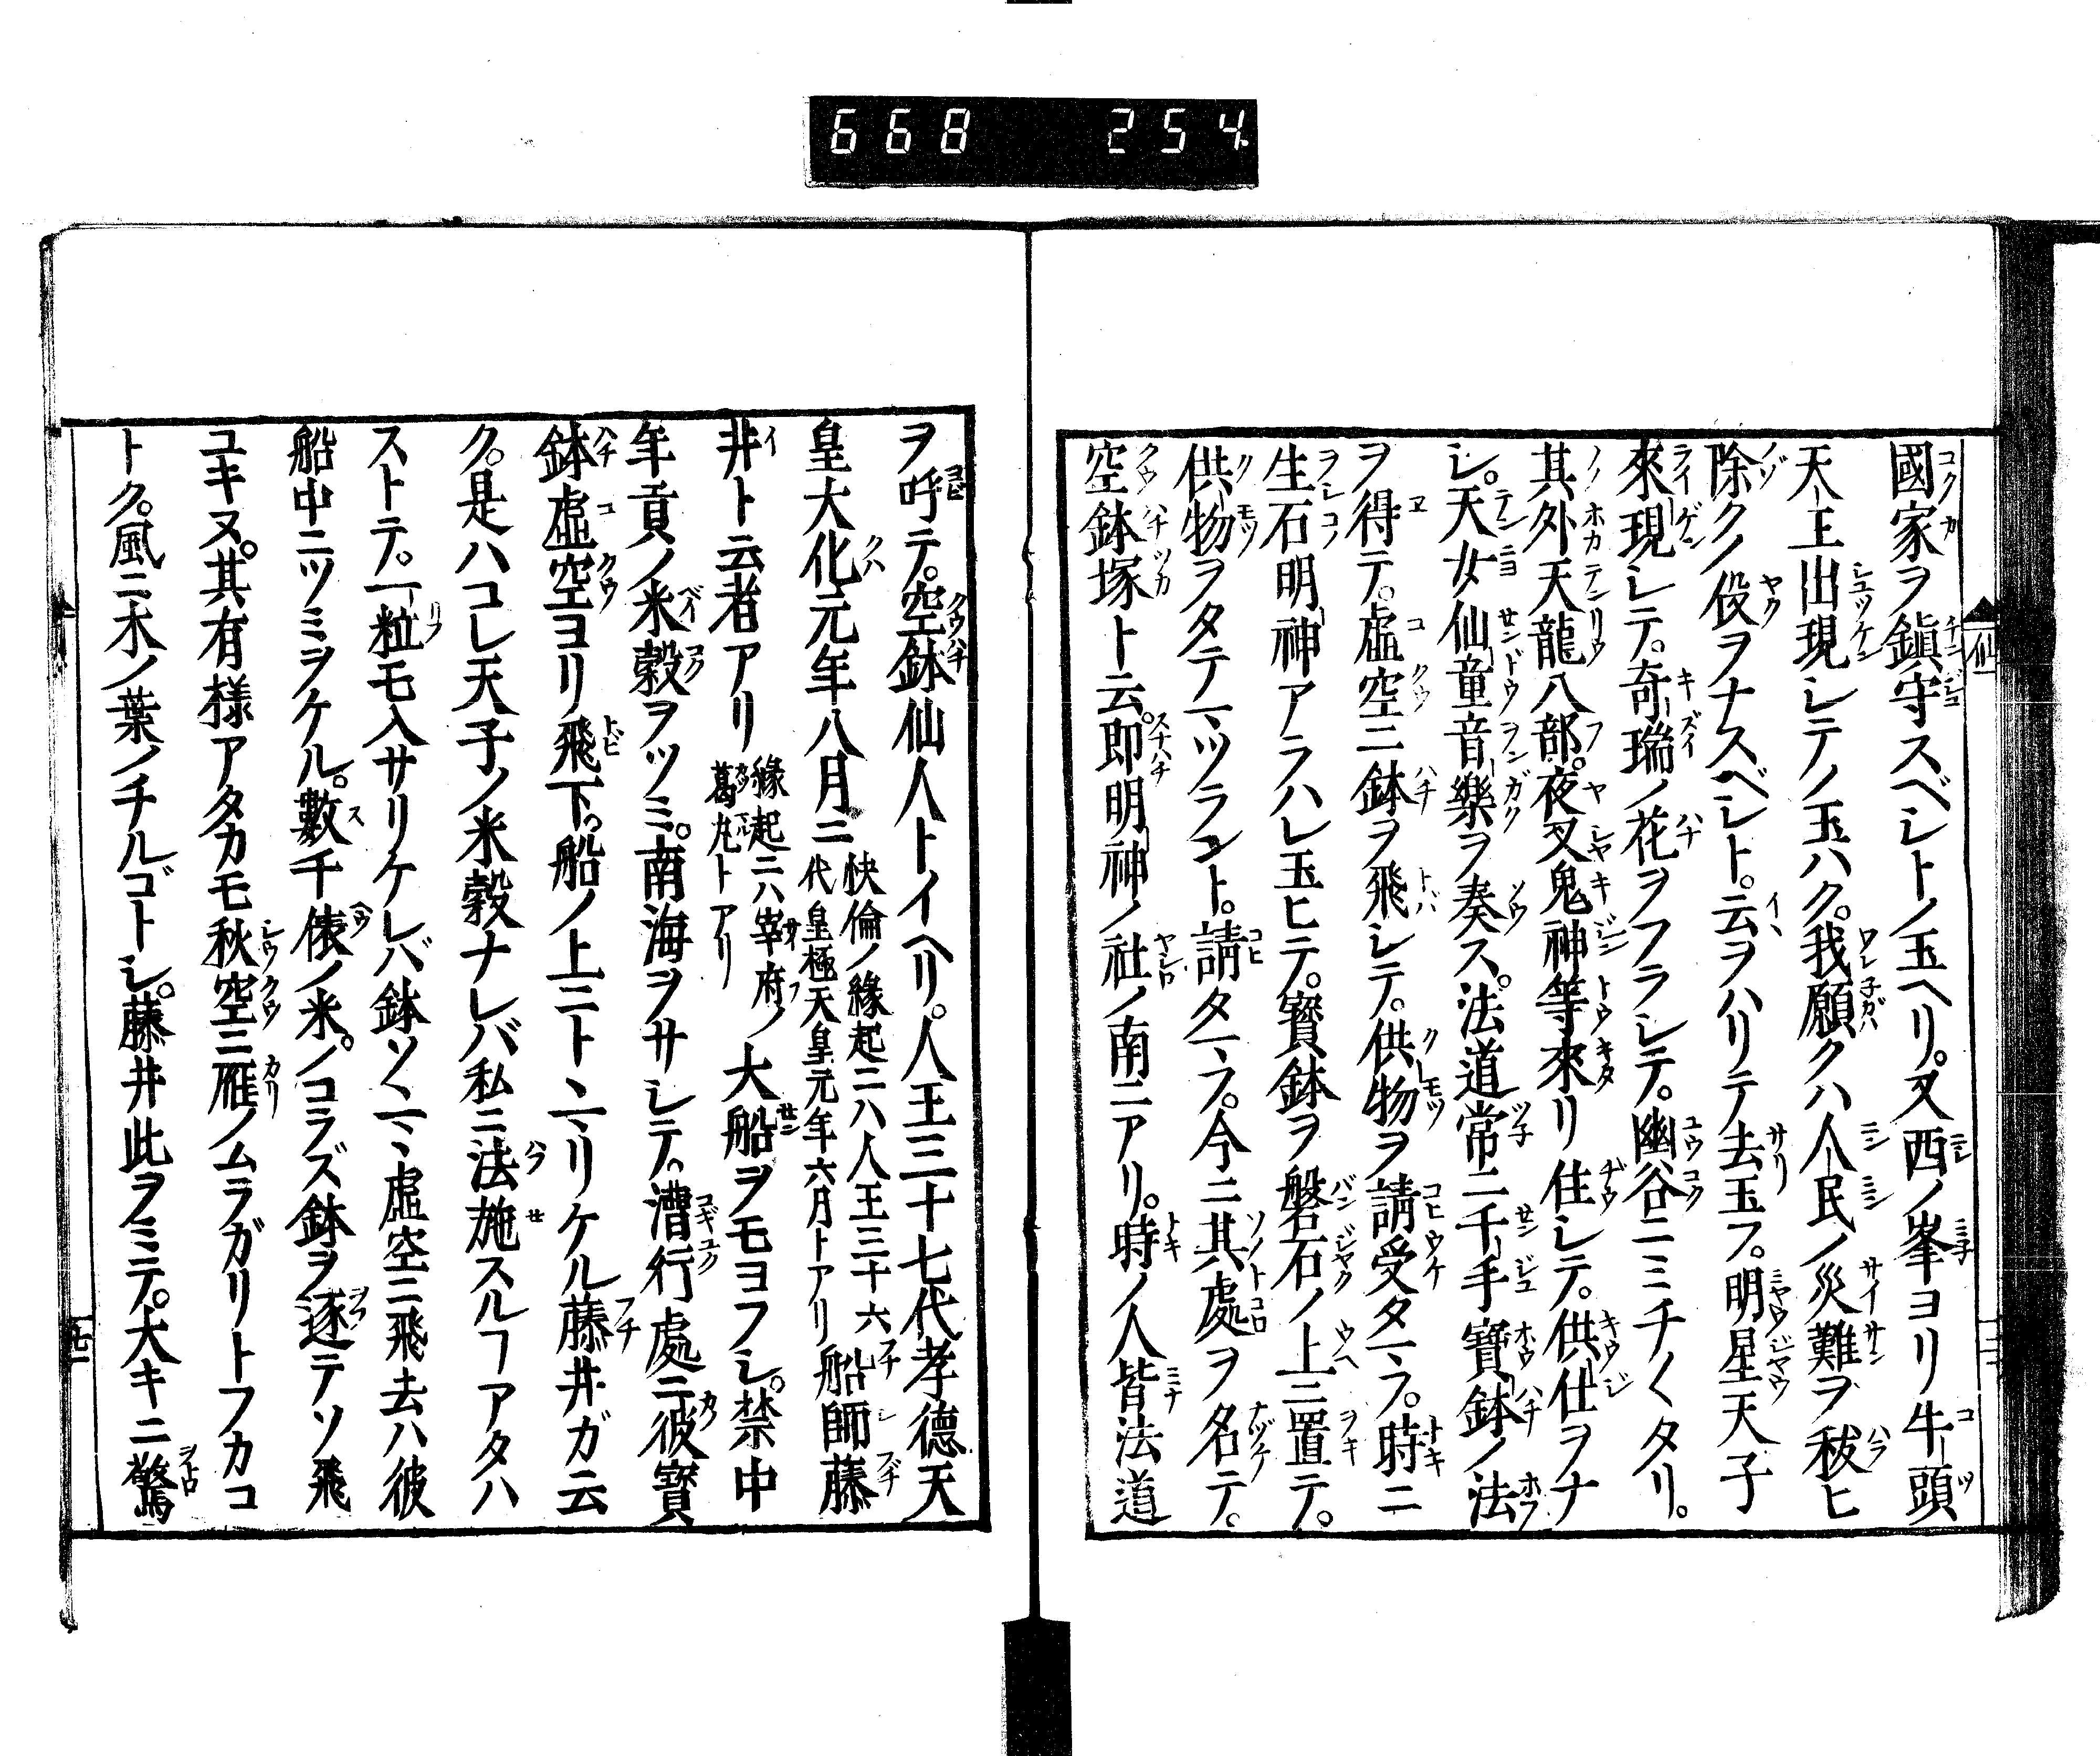 668 254
國家ヲ鎭守スベシトノ玉ヘリ。又西ノ峯ヨリ牛頭
天王出現シテノ玉ハク。我願クハ人民ノ災難ヲ秡ヒ
除クノ役ヲナスベシト。云ヲハリテ去玉フ。明星天子
來現シテ。奇瑞ノ花ヲフラシテ。幽谷ニミチ〱タリ。
其外天龍八部。夜叉鬼神等來リ住シテ。供仕ヲナ
シ。天女仙童音樂ヲ奏ス。法道常ニ千手寶鉢ノ法
ヲ得テ。虛空ニ鉢ヲ飛シテ。供物ヲ請受タマフ。時ニ
生石明神アラハレ玉ヒテ。寳鉢ヲ磐石ノ上ニ置テ。
供物ヲタテマツラント。請タマフ。今ニ其處ヲ名テ。
空鉢塚ト云。即明神ノ社ノ南ニアリ。時ノ人皆法道
ヲ呼テ。空鉢仙人トイヘリ。人王三十七代孝德天
皇大化元年八月ニ 快倫ノ緣起ニハ人王三十六代皇極天皇元年六月トアリ 船師藤
井ト云者アリ 緣起ニハ宰府ノ葛丸トアリ 大船ヲモヨフシ。禁中
年貢ノ米穀ヲツミ。南海ヲサシテ。漕行處ニ彼寳
鉢虛空ヨリ飛下。船ノ上ニトヾマリケル藤井ガ云
ク。是ハコレ天子ノ米穀ナレバ私ニ法施スルヿアタハ
ストテ。一粒モ入サリケレバ鉢ソノマヽ虛空ニ飛去ハ彼
船中ニツミヲケル。數千俵ノ米。ノコラズ鉢ヲ逐テソ飛
ユキヌ。其有樣アタカモ秋空ニ雁ノムラガリトフカコ
トク。風ニ木ノ葉ノチルゴトシ。藤井此ヲミテ。大キニ驚